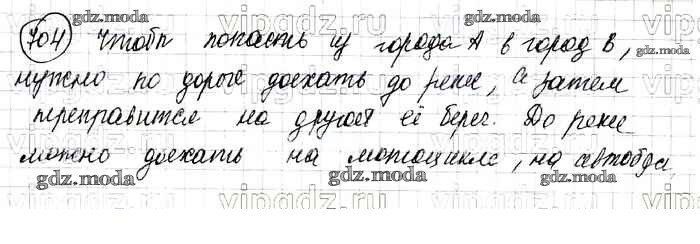 704 Чтобы попасть из города А в город В,
нужно по дороге доехать до реки, а затем
переправится на другой её берег. До реки
можно доехать на мотоцикле, на автобусе
gdz.moda
vipgdz.ru